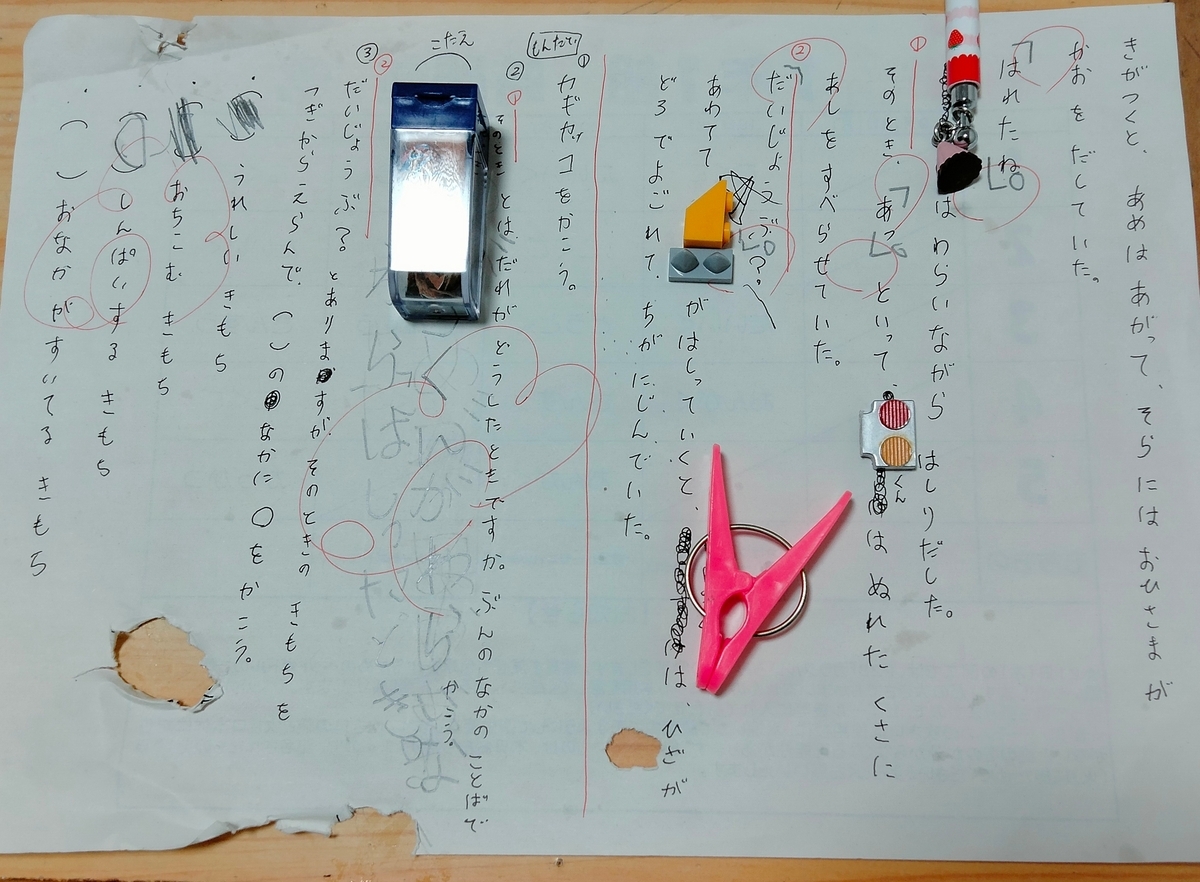 きがつくと、あめは あがって、そらには おひさまが
かお を だして いた。
「はれたね。」
は わらいながら はしりだした。
①
そのとき、「あっ。」といって、
くん は ぬれた くさに
あしを すべらせて いた。
②
「だいじょうぶ？」
あわてて
が はしって いくと、
は、ひざが
どろ で よごれて、ちが にじんで いた。
もんだい
① カギカッコ を かこう。
② ① そのとき とは、だれが どうしたときですか。ぶんの なかの ことばで
かこう。
こたえ
③ ② だいじょうぶ？ とありますが、そのときの きもちを
つぎから えらんで、( )の なかに ○を かこう。
うれしい きもち
おちこむ きもち
しんぱいする きもち
( ) おなかが すいてる きもち